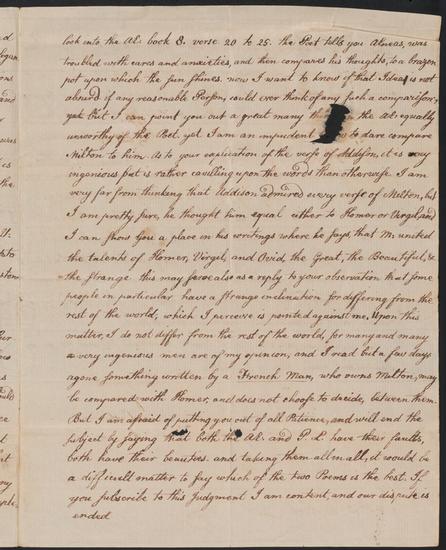 look into the AE: book 8. verse 20 to 25. the Poet tells you AEneas, was
troubled with cares and anxieties, and then compares his thoughts, to a brazen
pot upon which the sun shines. now I want to know if that Idea is not
absurd if any reasonable Person, could ever think of any such a comparison?
yet but I can point you out a great many in the AE: equally
unworthy of the Poet. yet I am an impudent to dare compare
Milton to him. As to your explication of the verse of Addison, it is very
ingenious but is rather cavilling upon the words than otherwise. I am
very far from thinking that Addison admired every verse of Milton, but
I am pretty sure, he thought him equal either to Homer or Vergel, and
I can show you a place in his writings where he says, that M: united
the talents of Homer, Virgel, and Ovid, the Great, the Beautiful, &
the strange this may serve also as a reply to your observation that some
people in particular have a strange inclination for differing from the
rest of the world, which I perceive is pointed against me. Upon this
matter, I do not differ from the rest of the world, for many and many
a very ingenious men are of my opinion, and I read but a few days
agone something written by a French Man, who owns Milton, may
be compared with Homer, and does not choose to decide, between them.
But I am afraid of putting you out of all Patience, and will end the
subject by saying that both the AE. and P. L. have their faults,
both have their beauties. and taking them all in all, it would be
a difficult matter to say which of the two Poems is the best. If
you subscribe to this Judgment I am content, and our dispute is
ended